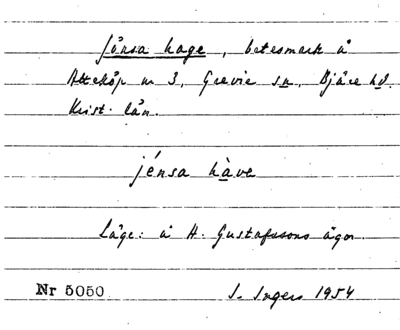 Jönsa hage, betesmark å
Atteköp nr 3, Grevie sn, Bjäre hd.
Krist. län.
jénsa hàve
Läge: å H. Gustafssons ägor.
Nr 5050 I. Ingers 1954